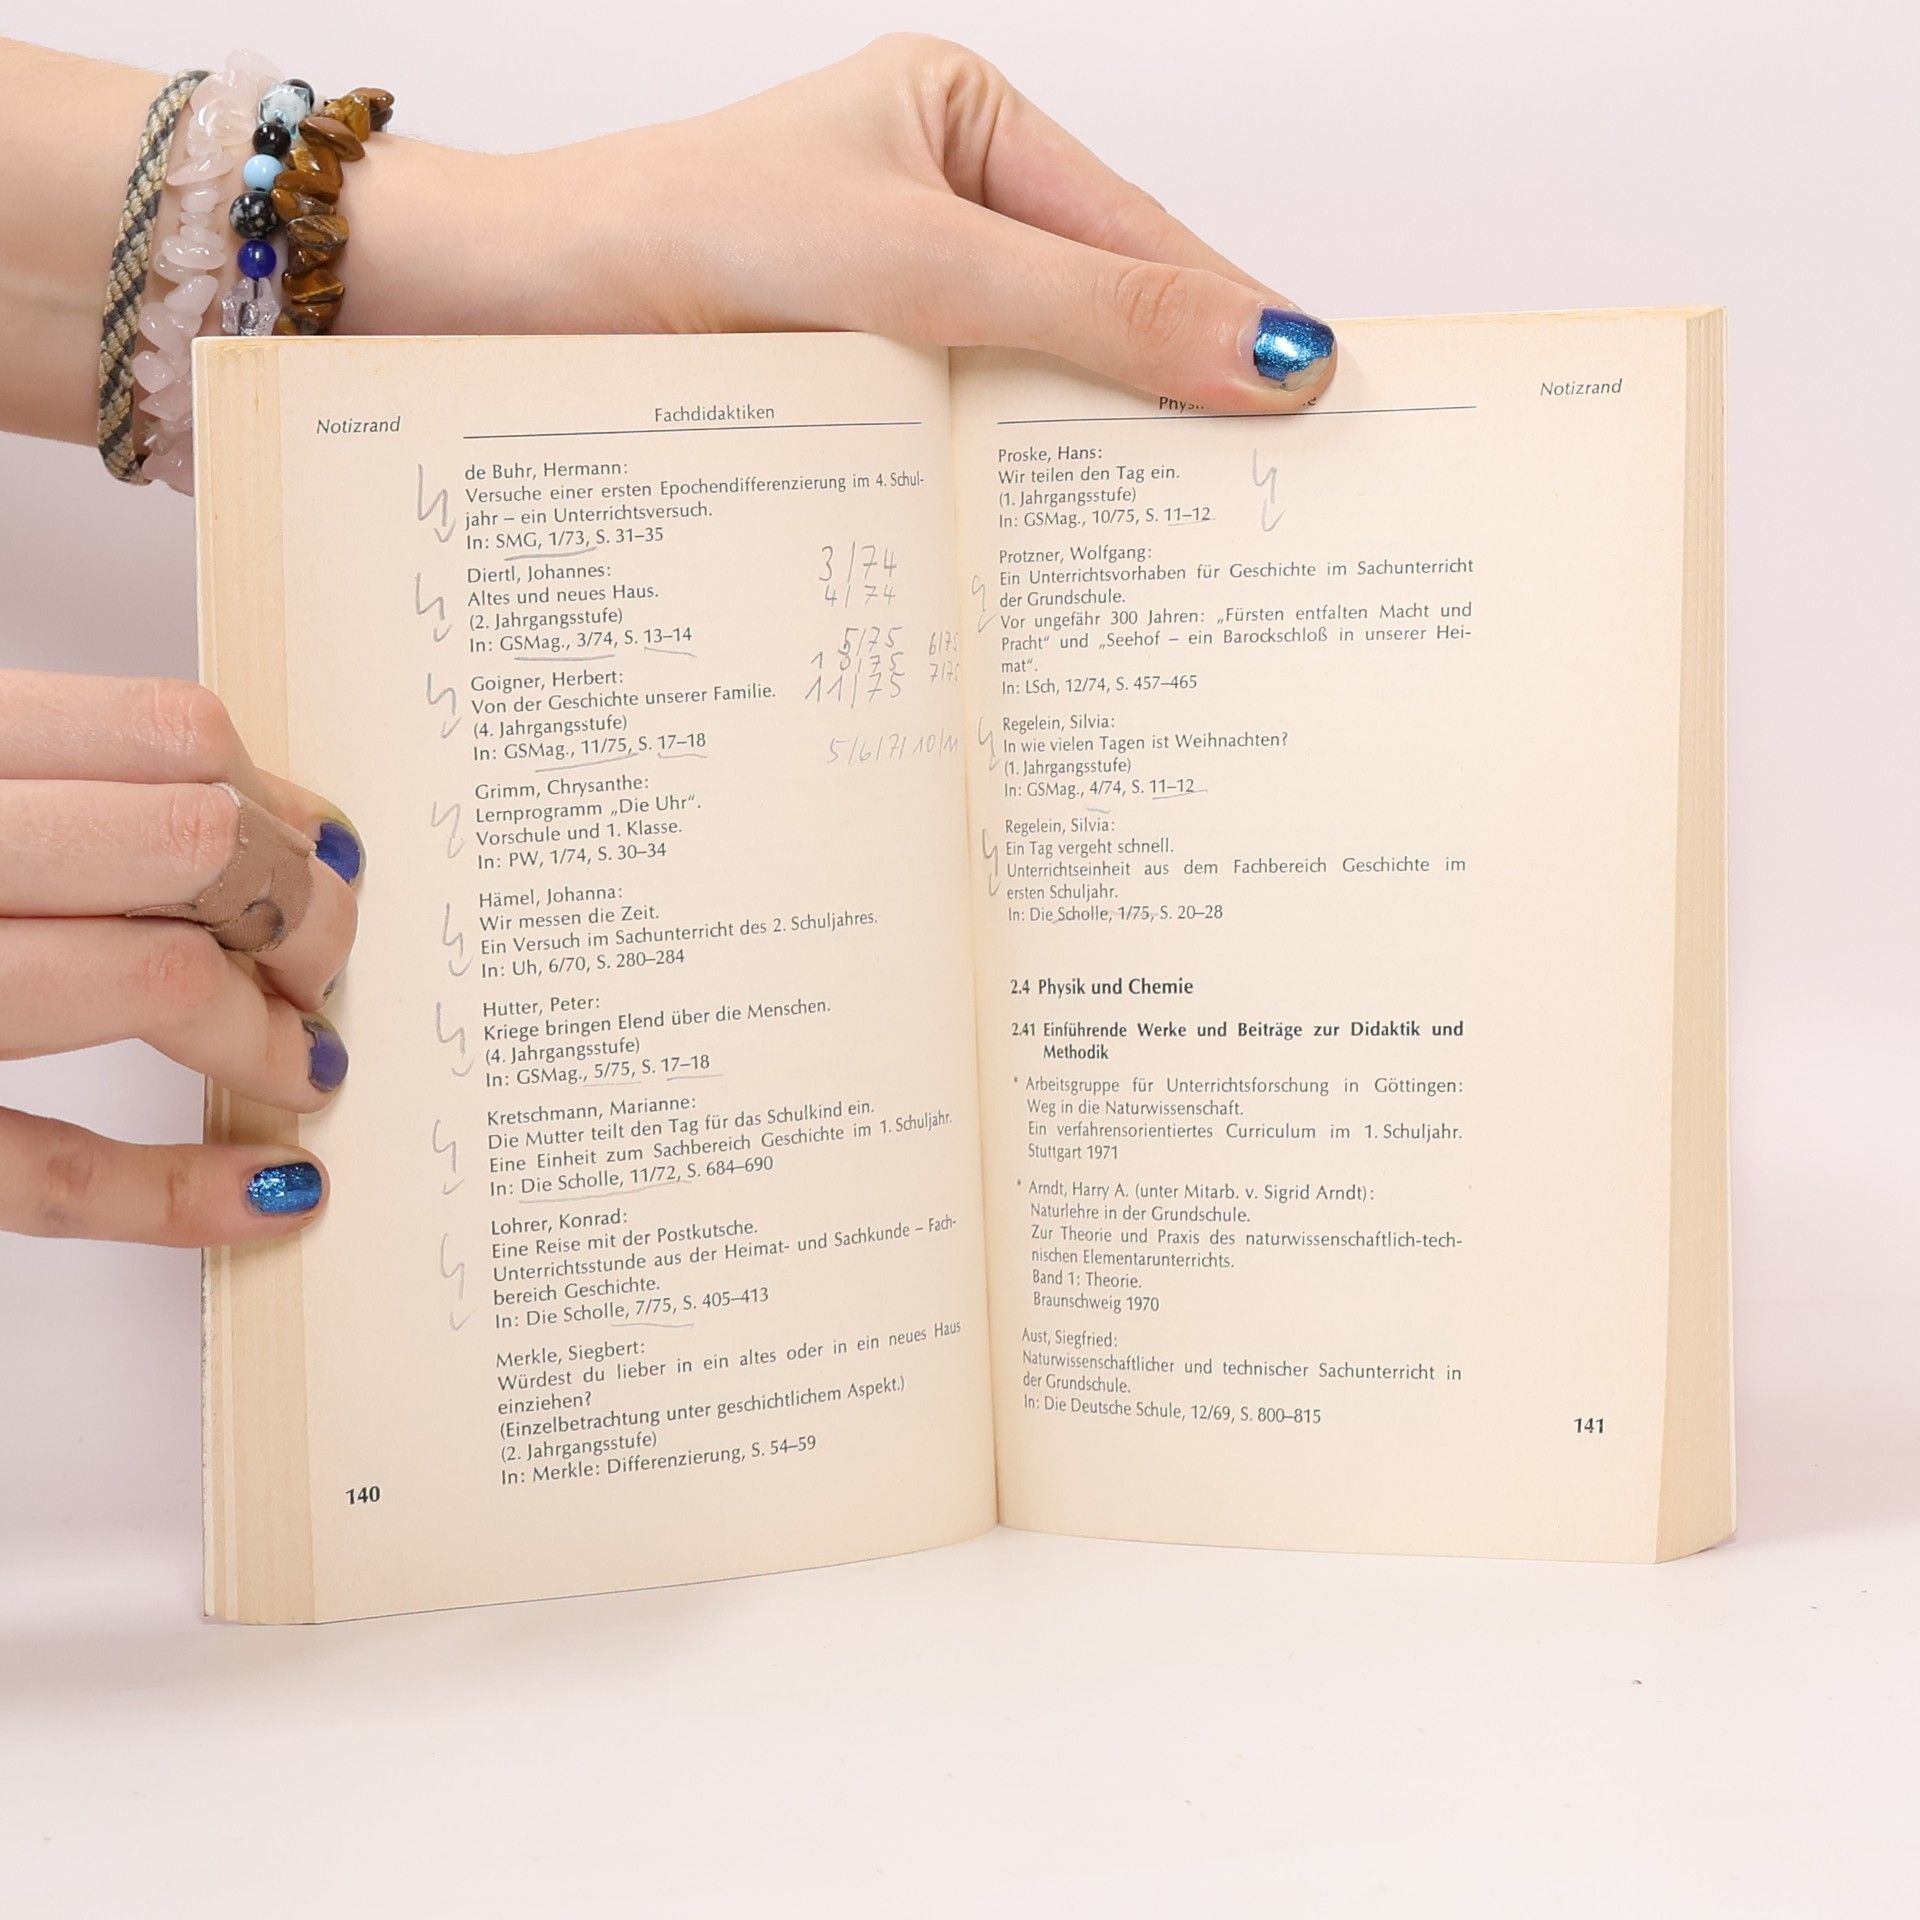 Notizrand
Fachdidaktiken
de Buhr, Hermann:
Versuche einer ersten Epochendifferenzierung im 4. Schul-
jahr – ein Unterrichtsversuch.
In: SMG, 1/73, S. 31–35
3/74
Diertl, Johannes:
Altes und neues Haus.
4/74
(2. Jahrgangsstufe)
In: GSMag., 3/74, S. 13–14
5/75 6/75
7/75
Goigner, Herbert:
Von der Geschichte unserer Familie.
11/75
(4. Jahrgangsstufe)
In: GSMag., 11/75, S. 17–18
5/6/7/10/11
Grimm, Chrysanthe:
Lernprogramm „Die Uhr“.
Vorschule und 1. Klasse.
In: PW, 1/74, S. 30–34
Hämel, Johanna:
Wir messen die Zeit.
Ein Versuch im Sachunterricht des 2. Schuljahres.
In: Uh, 6/70, S. 280–284
Hutter, Peter:
Kriege bringen Elend über die Menschen.
(4. Jahrgangsstufe)
In: GSMag., 5/75, S. 17–18
Kretschmann, Marianne:
Die Mutter teilt den Tag für das Schulkind ein.
Eine Einheit zum Sachbereich Geschichte im 1. Schuljahr.
In: Die Scholle, 11/72, S. 684–690
Lohrer, Konrad:
Eine Reise mit der Postkutsche.
Unterrichtsstunde aus der Heimat- und Sachkunde – Fach-
bereich Geschichte.
In: Die Scholle, 7/75, S. 405–413
Merkle, Siegbert:
Würdest du lieber in ein altes oder in ein neues Haus
einziehen?
(Einzelbetrachtung unter geschichtlichem Aspekt.)
(2. Jahrgangsstufe)
In: Merkle: Differenzierung, S. 54–59
140
Notizrand
Proske, Hans:
Wir teilen den Tag ein.
(1. Jahrgangsstufe)
In: GSMag., 10/75, S. 11–12
Protzner, Wolfgang:
Ein Unterrichtsvorhaben für Geschichte im Sachunterricht
der Grundschule.
Vor ungefähr 300 Jahren: „Fürsten entfalten Macht und
Pracht“ und „Seehof – ein Barockschloß in unserer Hei-
mat“.
In: LSch, 12/74, S. 457–465
Regelein, Silvia:
In wie vielen Tagen ist Weihnachten?
(1. Jahrgangsstufe)
In: GSMag., 4/74, S. 11–12
Regelein, Silvia:
Ein Tag vergeht schnell.
Unterrichtseinheit aus dem Fachbereich Geschichte im
ersten Schuljahr.
In: Die Scholle, 1/75, S. 20–28
2.4 Physik und Chemie
2.41 Einführende Werke und Beiträge zur Didaktik und
Methodik
* Arbeitsgruppe für Unterrichtsforschung in Göttingen:
Weg in die Naturwissenschaft.
Ein verfahrensorientiertes Curriculum im 1. Schuljahr.
Stuttgart 1971
* Arndt, Harry A. (unter Mitarb. v. Sigrid Arndt):
Naturlehre in der Grundschule.
Zur Theorie und Praxis des naturwissenschaftlich-tech-
nischen Elementarunterrichts.
Band 1: Theorie.
Braunschweig 1970
Aust, Siegfried:
Naturwissenschaftlicher und technischer Sachunterricht in
der Grundschule.
In: Die Deutsche Schule, 12/69, S. 800–815
141